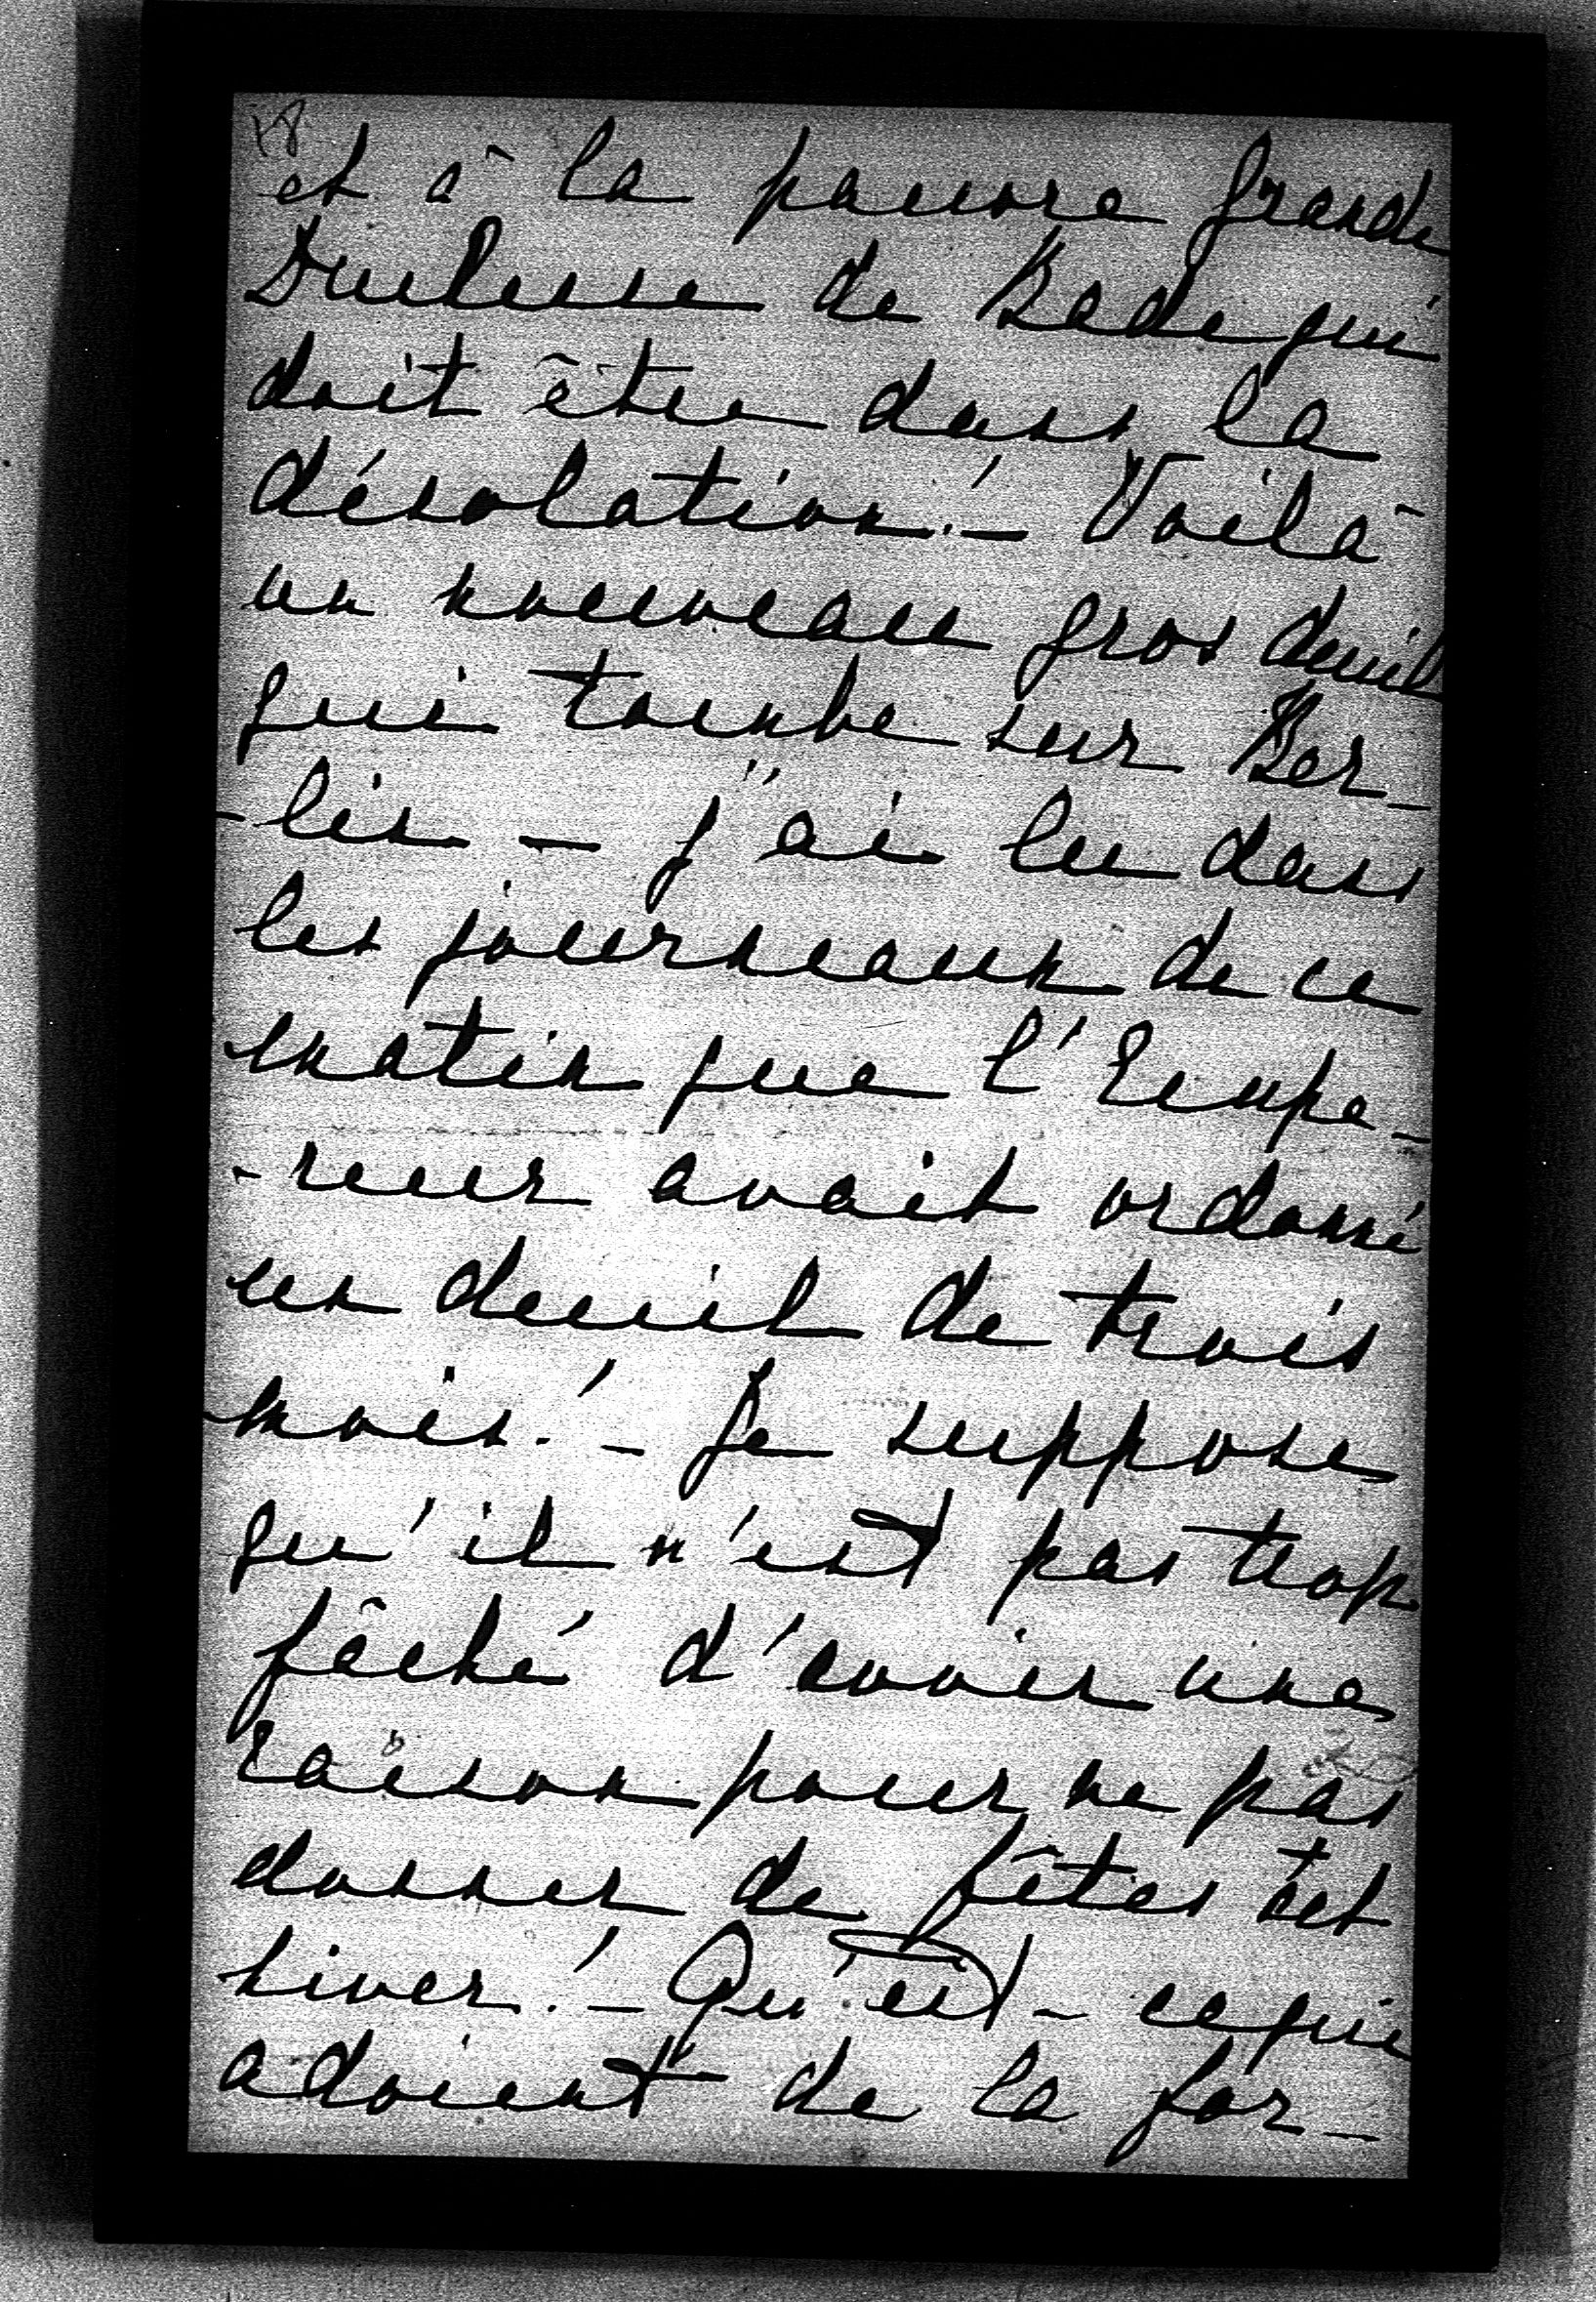 et à la pauvre grande
Duchesse de Bade qui
doit être dans la
désolation! – Voilà
un nouveau gros deuil
qui tombe sur Ber-
-lin – j'ai lu dans
les journaux de ce
matin que l'Empe-
-reur avait ordonné
un deuil de trois
mois! – Je suppose
qu'il n'est pas trop
fâché d'avoir une
raison pour ne pas
donner de fêtes cet
hiver! – Qu'est-ce qui
advient de la for-